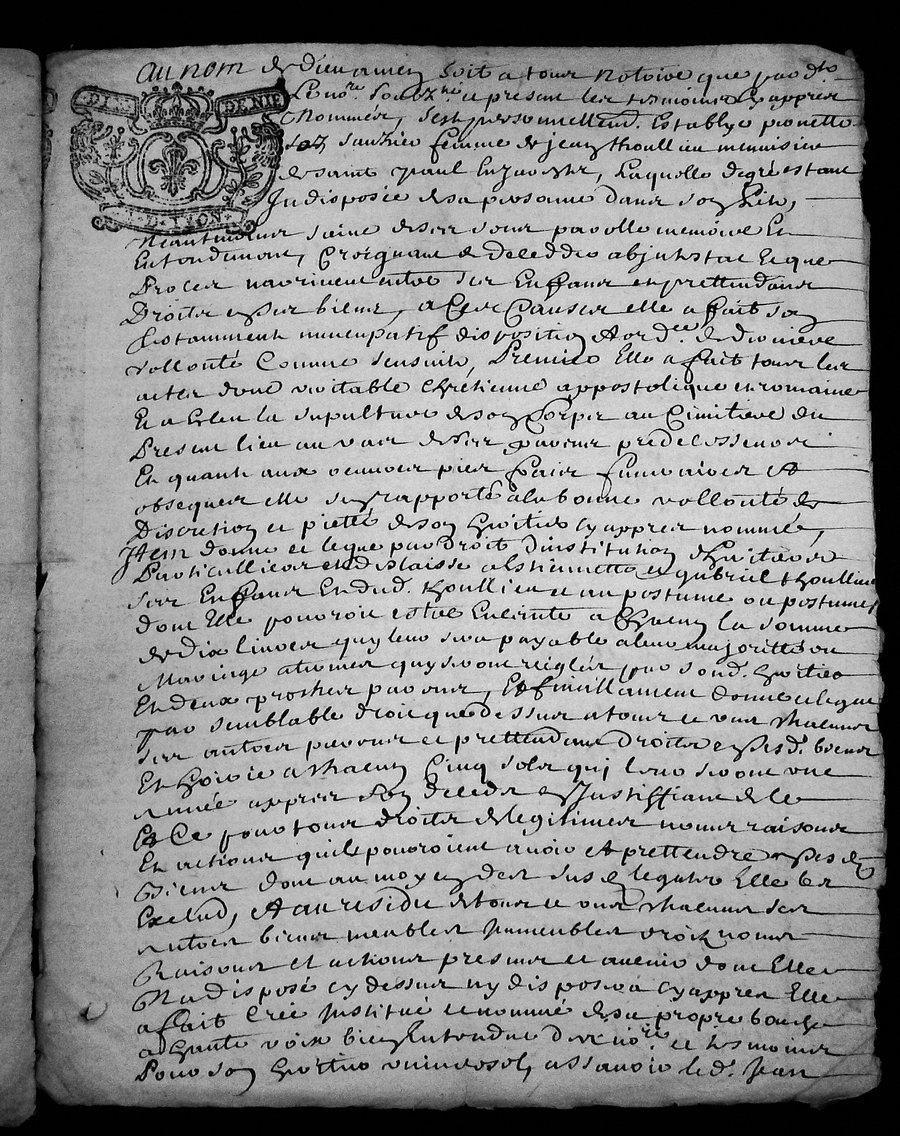 DIX DENIE
G. D. LYON
Au nom de dieu amen soit a tous notoire que par dt
Le nore soubzne et presant les tesmoins cy appres
Nommes, sest personnellemt. Establye ponette
sauzhier femme de jean thoullieu menuisier
de saint paul en Jarestz, Laquelle de gré estant
Indisposée de sa personne dans son lit,
Neantmoins saine de ses sens parolle memoire Et
Entendement, Craignant de deceddes abjntestat et que
Proces narrivent entre ses Enffans et prettendans
Droits es ses biens, a Ces Causes elle a fait son
Testamment nuncupatif disposition et ordce. de derniere
vollonté Comme sensuit, Premier Elle a fait tous les
actes dune veritable Chretienne appostolique et romaine
Et a Esleu la sepulture de son Corps au Cimitiere du
Present lieu au vas de ses parens predecesseurs
Et quant aux oeuvres pies frais funeraires et
obseques elle sen rapporte a la bonne vollonté
Discretion et pieté de son heritier cy appres nommé,
Item donne et legue par Droit dinstitution dheritiers
Particulliers et delaisse a Estiennette et gabriel thoullieu
ses Enffans et dud. thoullieu et au postume ou postumes
dont Elle pourroit estre Enceinte a Chacun la somme
de dix livres quy leur sera payable a leur majorité ou
Mariage a termes quy seront reiglés par sond. heritier
Et deux proches parens, Et finallement donne et legue
par semblable droit que dessus a tous et uns Chacuns
ses autres parens et prettendans Droits es sesd. biens
Et hoirie a Chacun Cinq sols quy leur seront une
année appres son deceds en Justiffiant de le
Et Ce pour tous droits de legitimes noms raisons
Et actions quils pourroient avoir et prettendre es ses
Biens dont au moyen des susd. legats Elle les
Exclud, Et au residu de tous et uns Chacuns ses
autres biens meubles Immeubles droits noms
Raisons et actions presens et avenir dont Elle
Na disposé cy dessus ny disposera cy appres Elle
a fait Créé Institué et nommé de sa propre bouche
a haute voix bien Entendue dud. nore et tesmoins
Pour son heritier universel, assavoir led. Jean